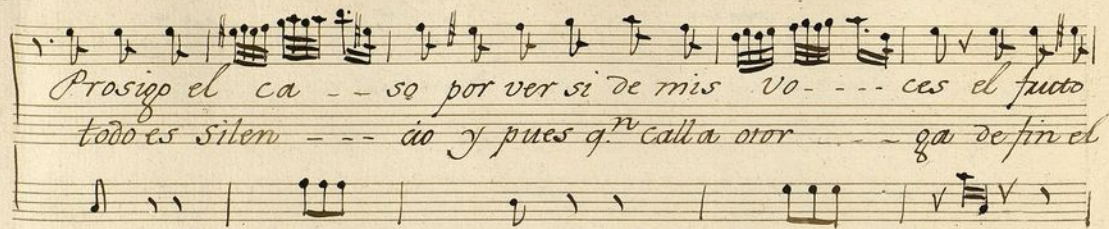 Prosigo el ca - - so por ver si de mis vo - - - - ces el fruto
todo es silen - - - - cio y pues q.n calla otor - - - - ga de fin el